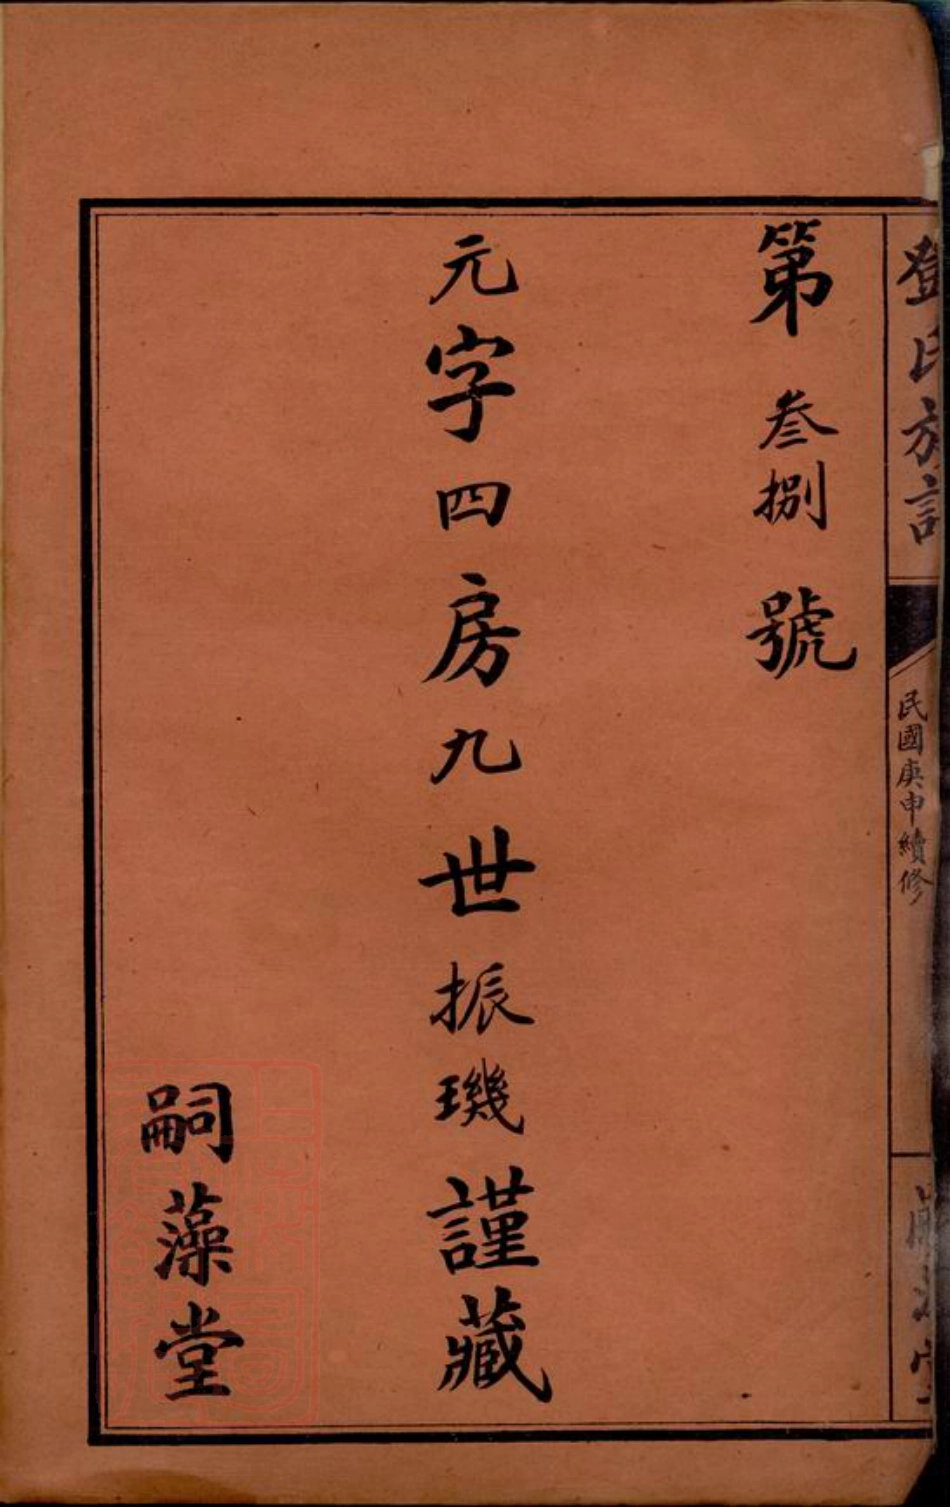 鄧氏族譜
民國庚申續修
第叁捌號
元字四房九世振璣謹藏
嗣藻堂